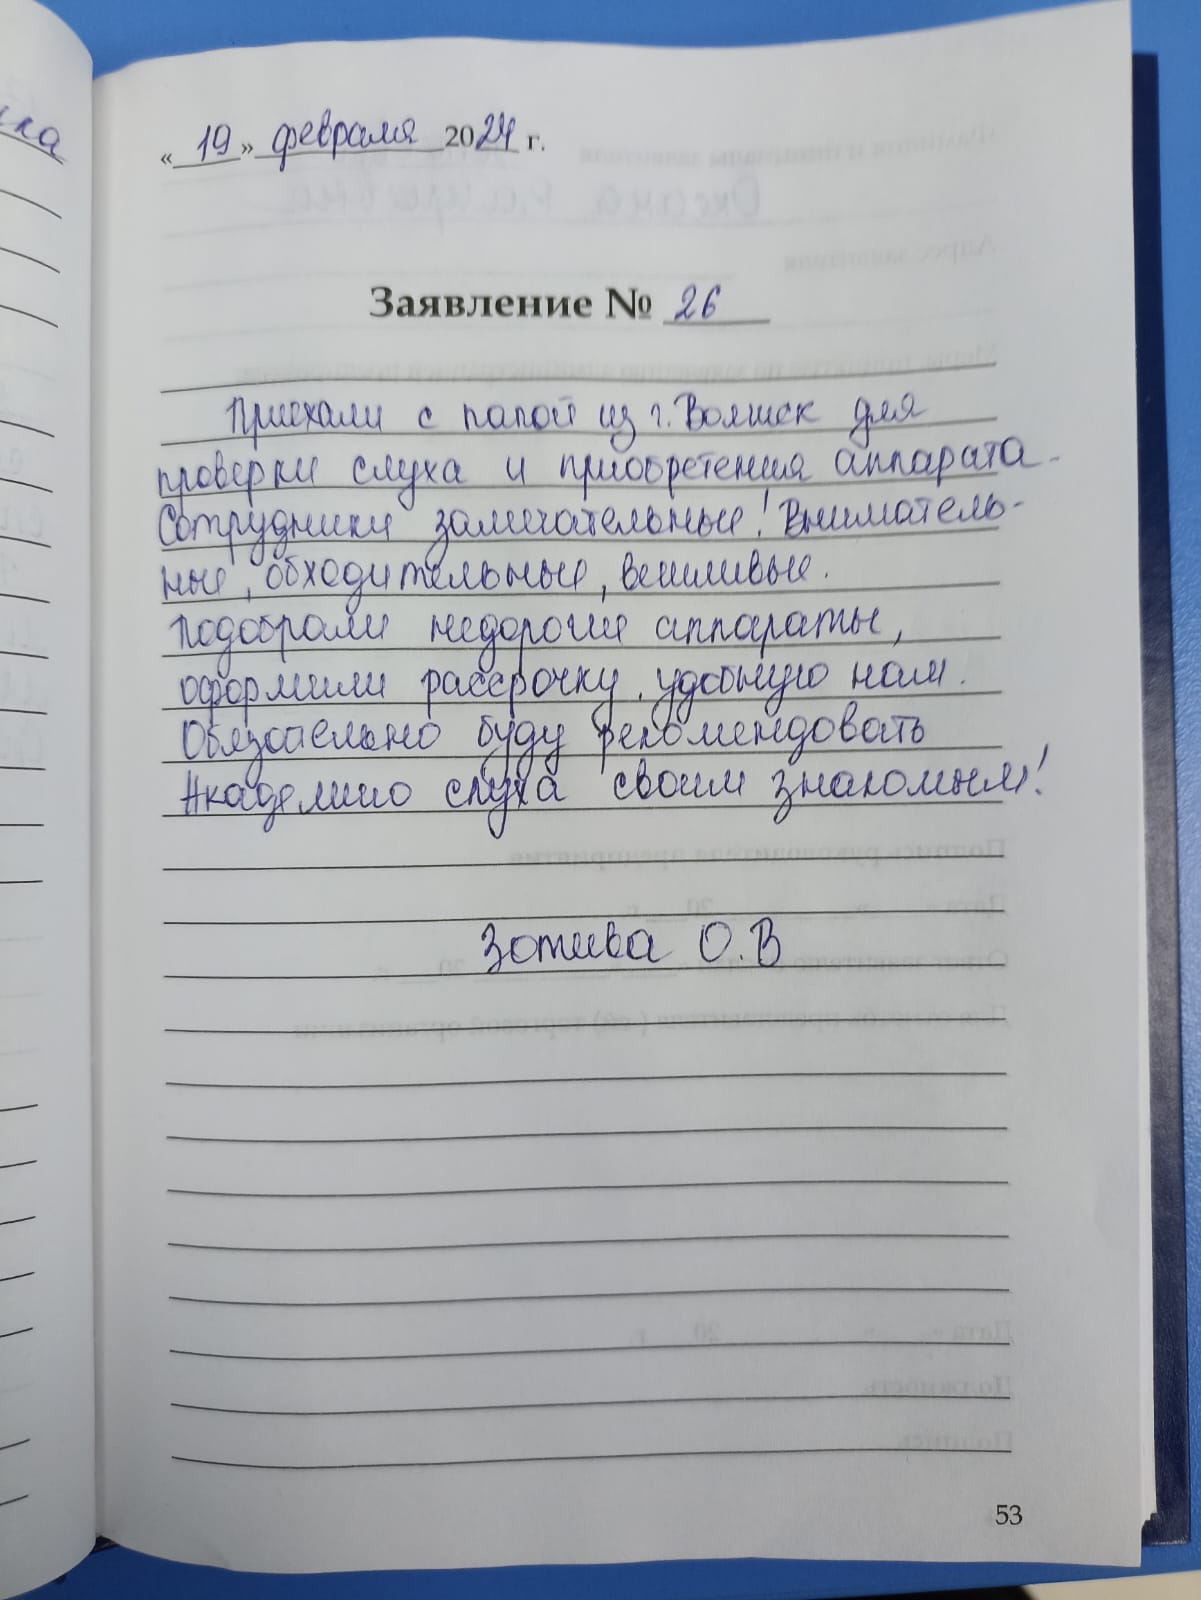 «19» февраля 2024 г.
Заявление № 26
Приехали с папой из г. Волжск для
проверки слуха и приобретения аппарата.
Сотрудники замечательные! Вниматель-
ные, обходительные, вежливые.
Подобрали недорогие аппараты,
оформили рассрочку, удобную нам.
Обязательно буду рекомендовать
Академию слуха своим знакомым!
Зотива О.В
53